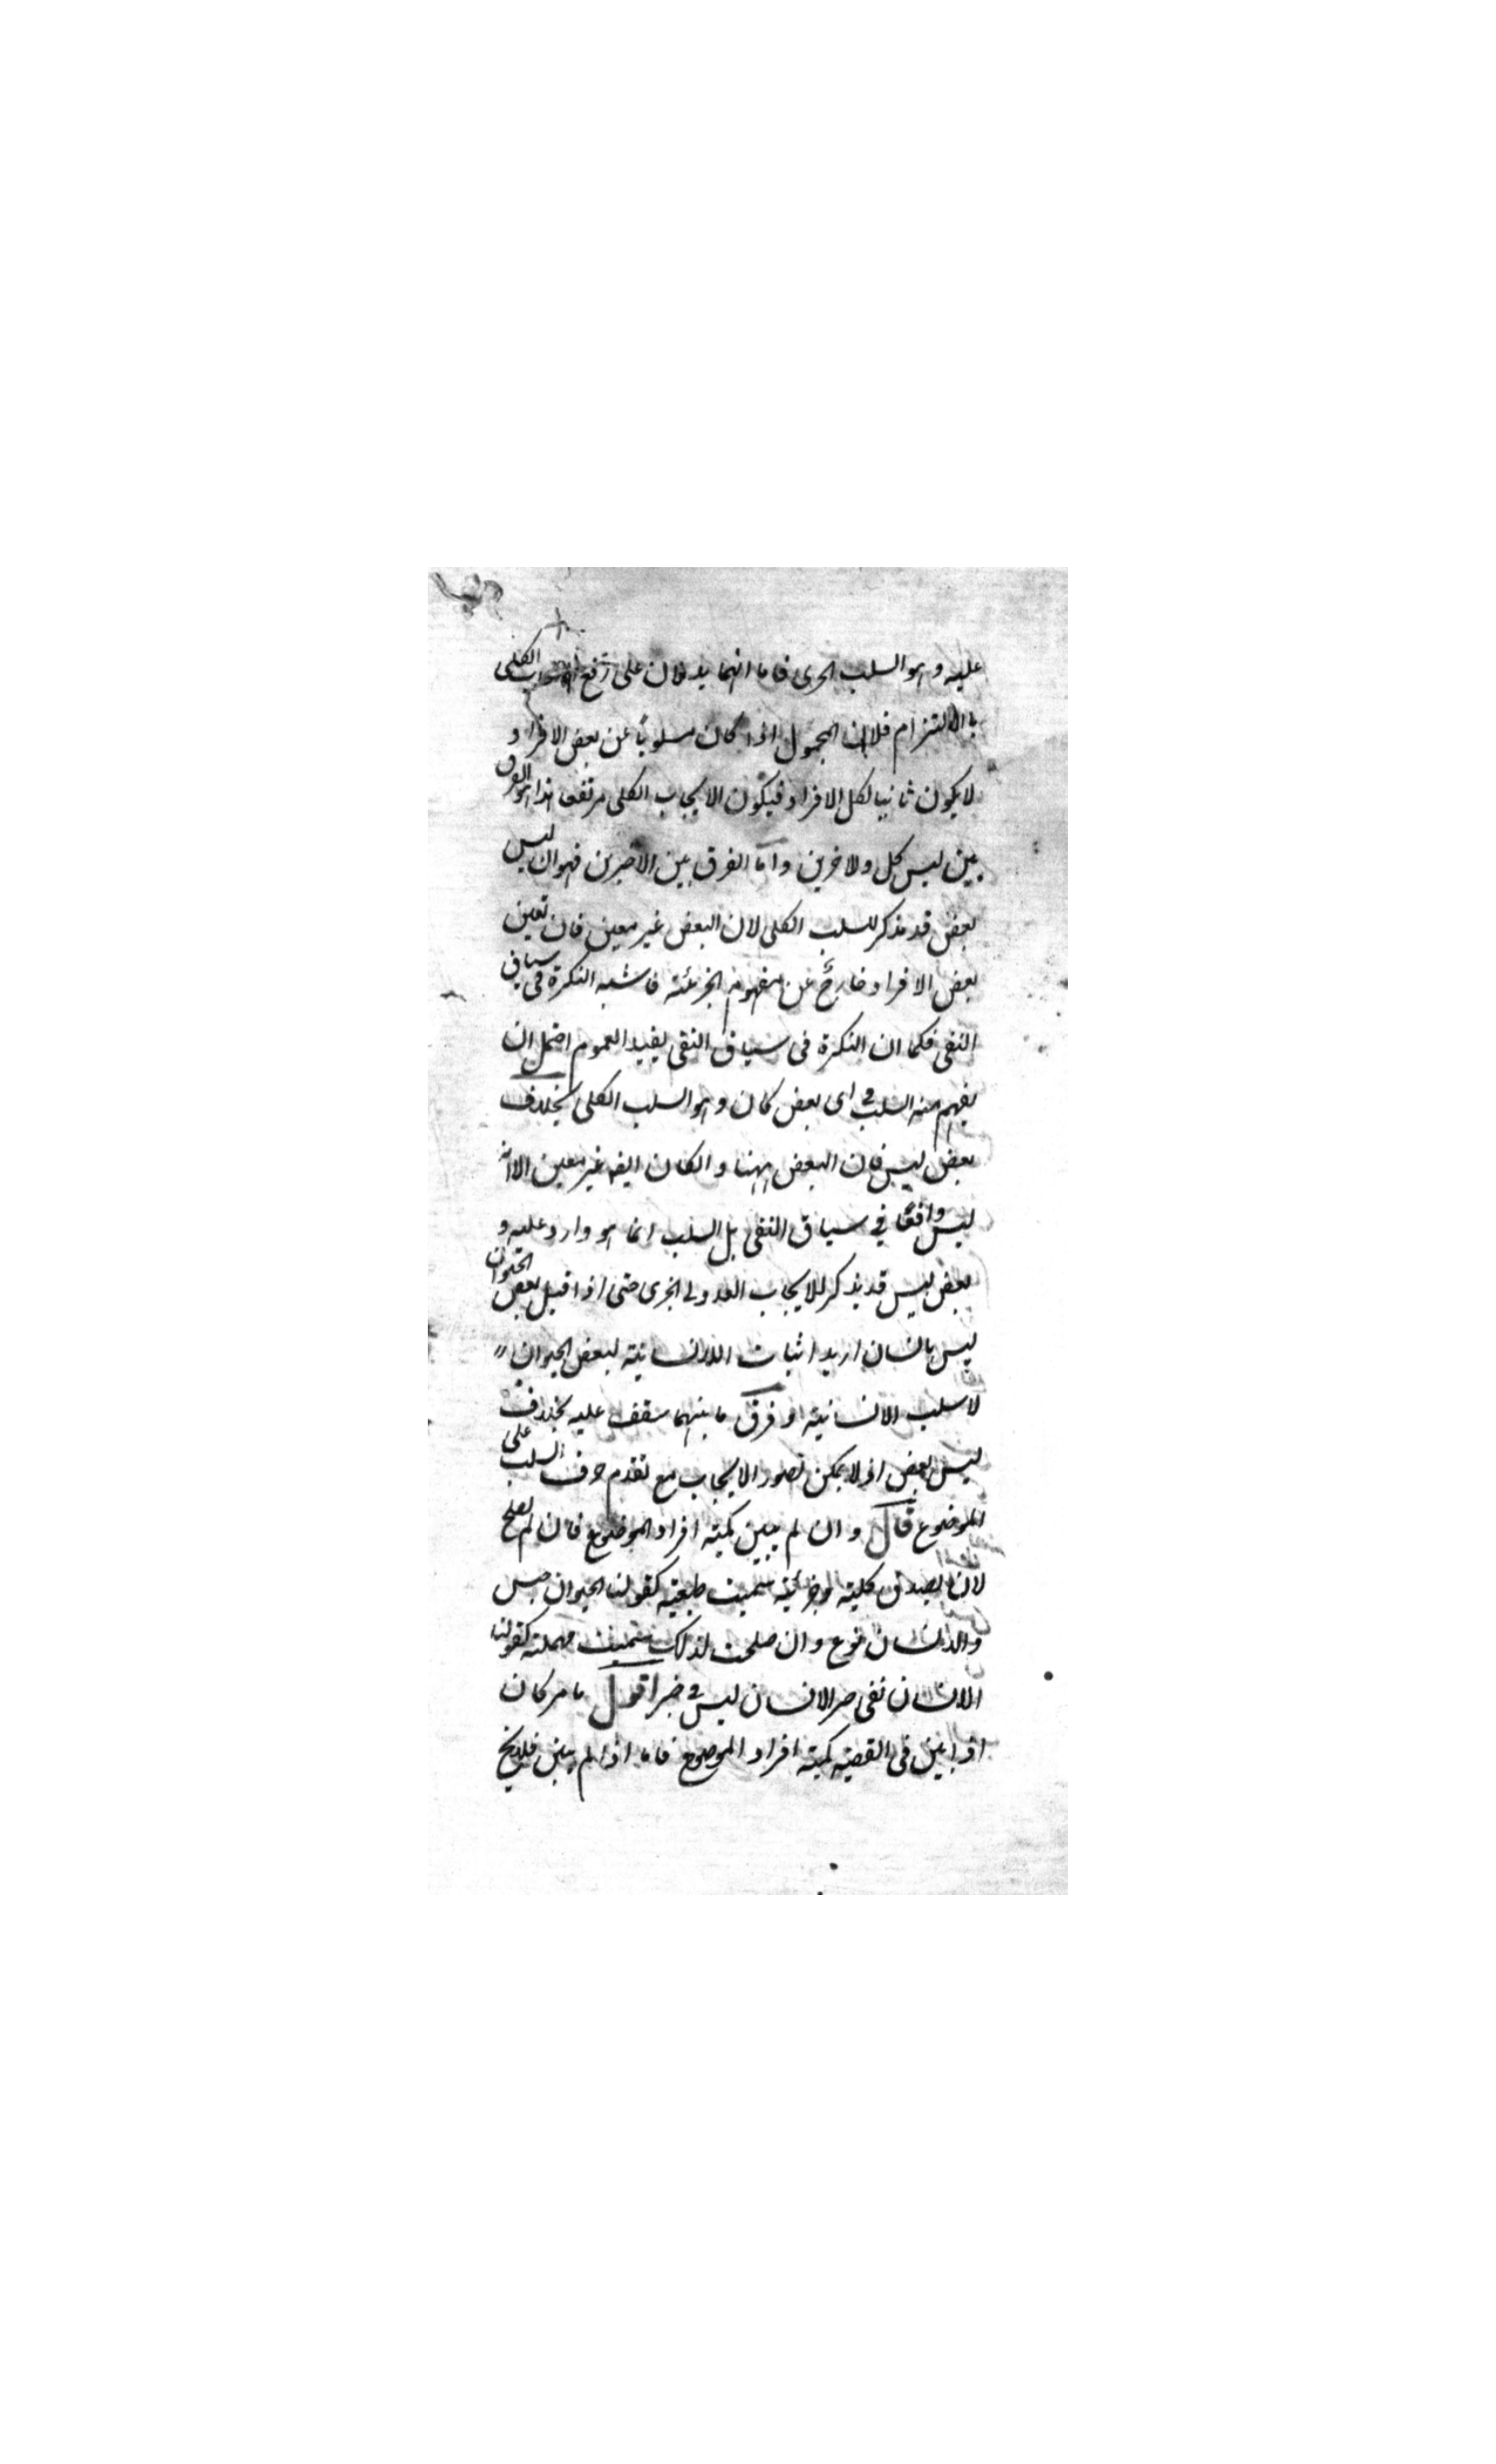 عليه وهو السلب الجزى فاما انهما يدلان على رفع الايجاب الكلى
بالالتزام فلان المحمول اذا كان مسلوبًا عن بعض الافراد
لا يكون ثابتا لكل الافراد فيكون الايجاب الكلى مرتفعا هذا هو الفرق
بين ليس كل ولاخرين واما الفرق بين الاخيرين فهو ان ليس
بعض قد يذكر للسلب الكلى لان البعض غير معين فان تعين
بعض الافراد خارج عن مفهوم الجزئية فاشبه النكرة فى سياق
النفى فكما ان النكرة فى سياق النفى يفيد العموم احتمل ان
يفهم منه السلب فى اى بعض كان وهو السلب الكلى بخلاف
بعض ليس فان البعض ههنا والكان ايضه غير معين الا انه
ليس واقعًا فى سياق النفى بل السلب انما هو وارد عليه و
بعض ليس قد يذكر للايجاب العدولى الجزى حتى اذا قيل بعض الحيوان
ليس بانسان اريد اثبات اللاانسانية لبعض الحيوان
لا سلب الانسانية وفرق ما بينهما ستقف عليه بخلاف
ليس بعض اذ لا يمكن تصور الايجاب مع تقدم حرف السلب على
الموضوع قال وان لم يبين كمية افراد الموضوع فان لم يصلح
لان يصدق كلية وجزئية سميت طبعية كقولنا الحيوان جنس
والانسان نوع وان صلحت لذلك سميت مهملة كقولنا
الانسان لفى خسر الانسان ليس فى خسر اقول ما مر كان
اذا بين فى القضية كمية افراد الموضوع فاما اذا لم يبين فلا يخ